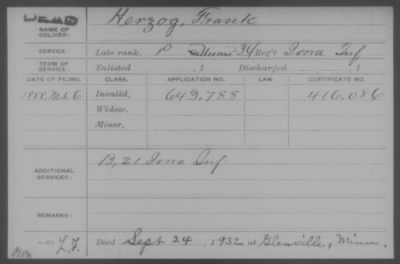 DEAD
NAME OF SOLDIER: Herzog, Frank
SERVICE: Late rank, P 34 Regt Iowa Inf
TERM OF SERVICE: Enlisted , 1 Discharged , 1
DATE OF FILING. CLASS. APPLICATION NO. LAW. CERTIFICATE NO.
1888, 6 Invalid, 643,788 416,086
Widow,
Minor,
ADDITIONAL SERVICES: B, 21 Iowa Inf
REMARKS:
Died Sept 24, 1932 at Glenville, Minn.